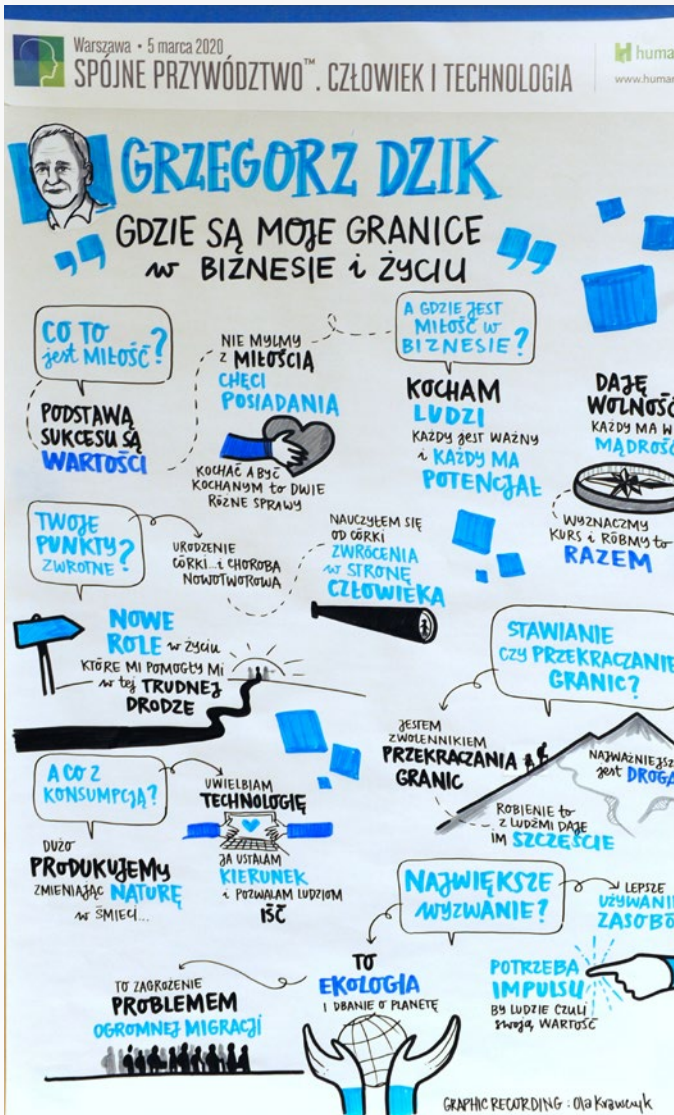 Warszawa • 5 marca 2020
SPÓJNE PRZYWÓDZTWO™. CZŁOWIEK I TECHNOLOGIA
huma
www.human
GRZEGORZ DZIK
„GDZIE SĄ MOJE GRANICE
w BIZNESIE i ŻYCIU”
CO TO
jest MIŁOŚĆ?
PODSTAWĄ
SUKCESU SĄ
WARTOŚCI
NIE MYLMY
z MIŁOŚCIĄ
CHĘCI
POSIADANIA
KOCHAĆ A BYĆ
KOCHANYM to DWIE
RÓŻNE SPRAWY
A GDZIE JEST
MIŁOŚĆ w
BIZNESIE?
KOCHAM
LUDZI
KAŻDY jest WAŻNY
i KAŻDY MA
POTENCJAŁ
DAJĘ
WOLNOŚĆ
KAŻDY MA W
MĄDROŚĆ
WYZNACZMY
KURS i RÓBMY to
RAZEM
TWOJE
PUNKTY
ZWROTNE?
URODZENIE
CÓRKI...i CHOROBA
NOWOTWOROWA
NAUCZYŁEM SIĘ
OD CÓRKI
ZWRÓCENIA
w STRONĘ
CZŁOWIEKA
NOWE
ROLE w życiu
KTÓRE MI POMOGŁY MI
w tej TRUDNEJ
DRODZE
STAWIANIE
czy PRZEKRACZANIE
GRANIC?
JESTEM
ZWOLENNIKIEM
PRZEKRACZANIA
GRANIC
NAJWAŻNIEJSZ
jest DROGA
ROBIENIE to
z LUDŹMI DAJE
IM SZCZĘŚCIE
A CO Z
KONSUMPCJĄ?
DUŻO
PRODUKUJEMY
ZMIENIAJĄC NATURĘ
w ŚMIECI...
UWIELBIAM
TECHNOLOGIĘ
JA USTALAM
KIERUNEK
i POZWALAM LUDZIOM
IŚĆ
NAJWIĘKSZE
WYZWANIE?
LEPSZE
UŻYWANIE
ZASOBÓ
POTRZEBA
IMPULSU
BY LUDZIE CZULI
swoją WARTOŚĆ
TO
EKOLOGIA
I DBANIE O PLANETĘ
TO ZAGROŻENIE
PROBLEMEM
OGROMNEJ MIGRACJI
GRAPHIC RECORDING: Ola Krawczyk